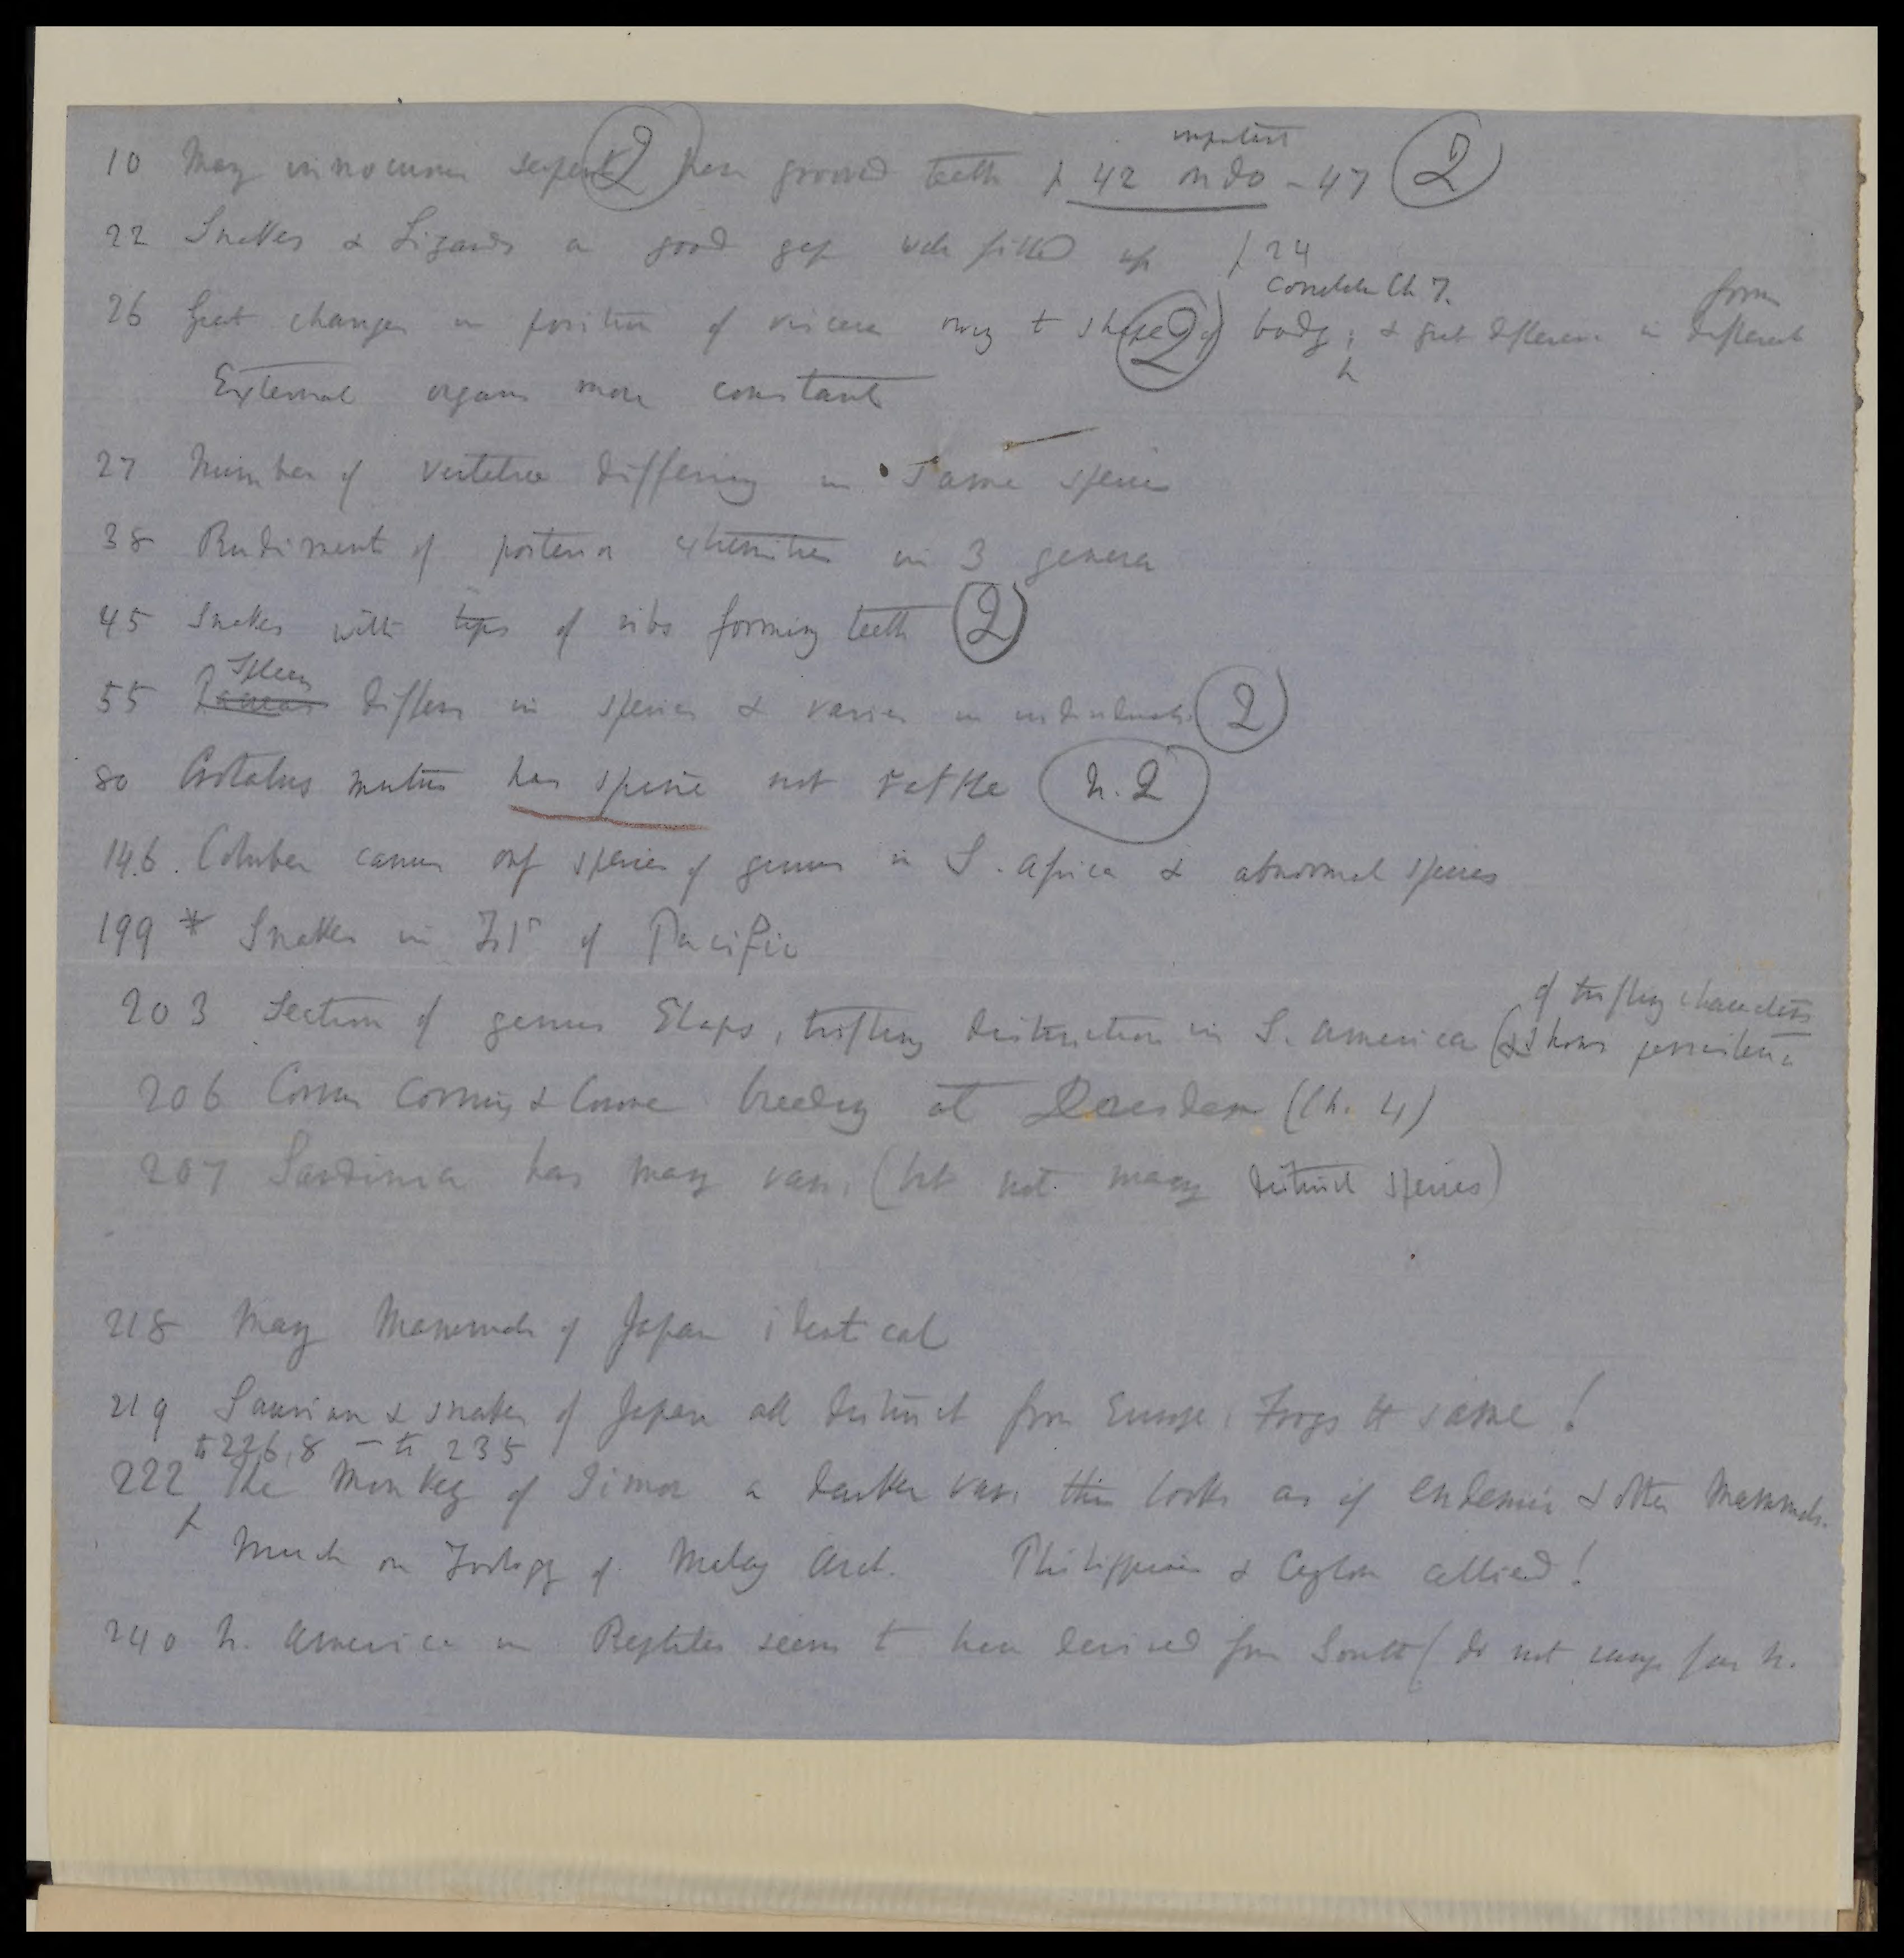 10 Many innocuous serpents have grooved teeth / 42 important on do – 47 (2) (2)
22 Snakes & Lizards a good gap well filled up / 24
26 Great changes in position of viscera owing to shape of body; & great difference in different forms (2) Ch 7.
External organs more constant
27 Number of vertebræ differing in same species
38 Rudiment of posterior extremities in 3 genera
45 Snakes with tips of ribs forming teeth (2)
55 Pancreas Spleen differs in species & varies in individuals (2)
80 Crotalus mutus has spine not rattle (n. 2)
146. Coluber canus only species of genus in S. Africa & abnormal species
199 * Snakes in Isl of Pacific
203 Section of genus Elaps, trifling distinction in S. America (& shows persistence of trifling characters
206 Corvus Corone breeding at Dresden (Ch. 4)
207 Sardinia has many vars. (but not many distinct species)
218 Many Mammals of Japan identical
219 Saurian & snakes of Japan all distinct from Europe, Frogs the same!
to 226, 8 – to 235
222 The Monkey of Timor a darker var. this looks as if endemic & other Mammals.
Much on Zoology of Malay Arch. Philippines & Ceylon allied!
240 N. America in Reptiles seems to have derived from South (do not range far N.